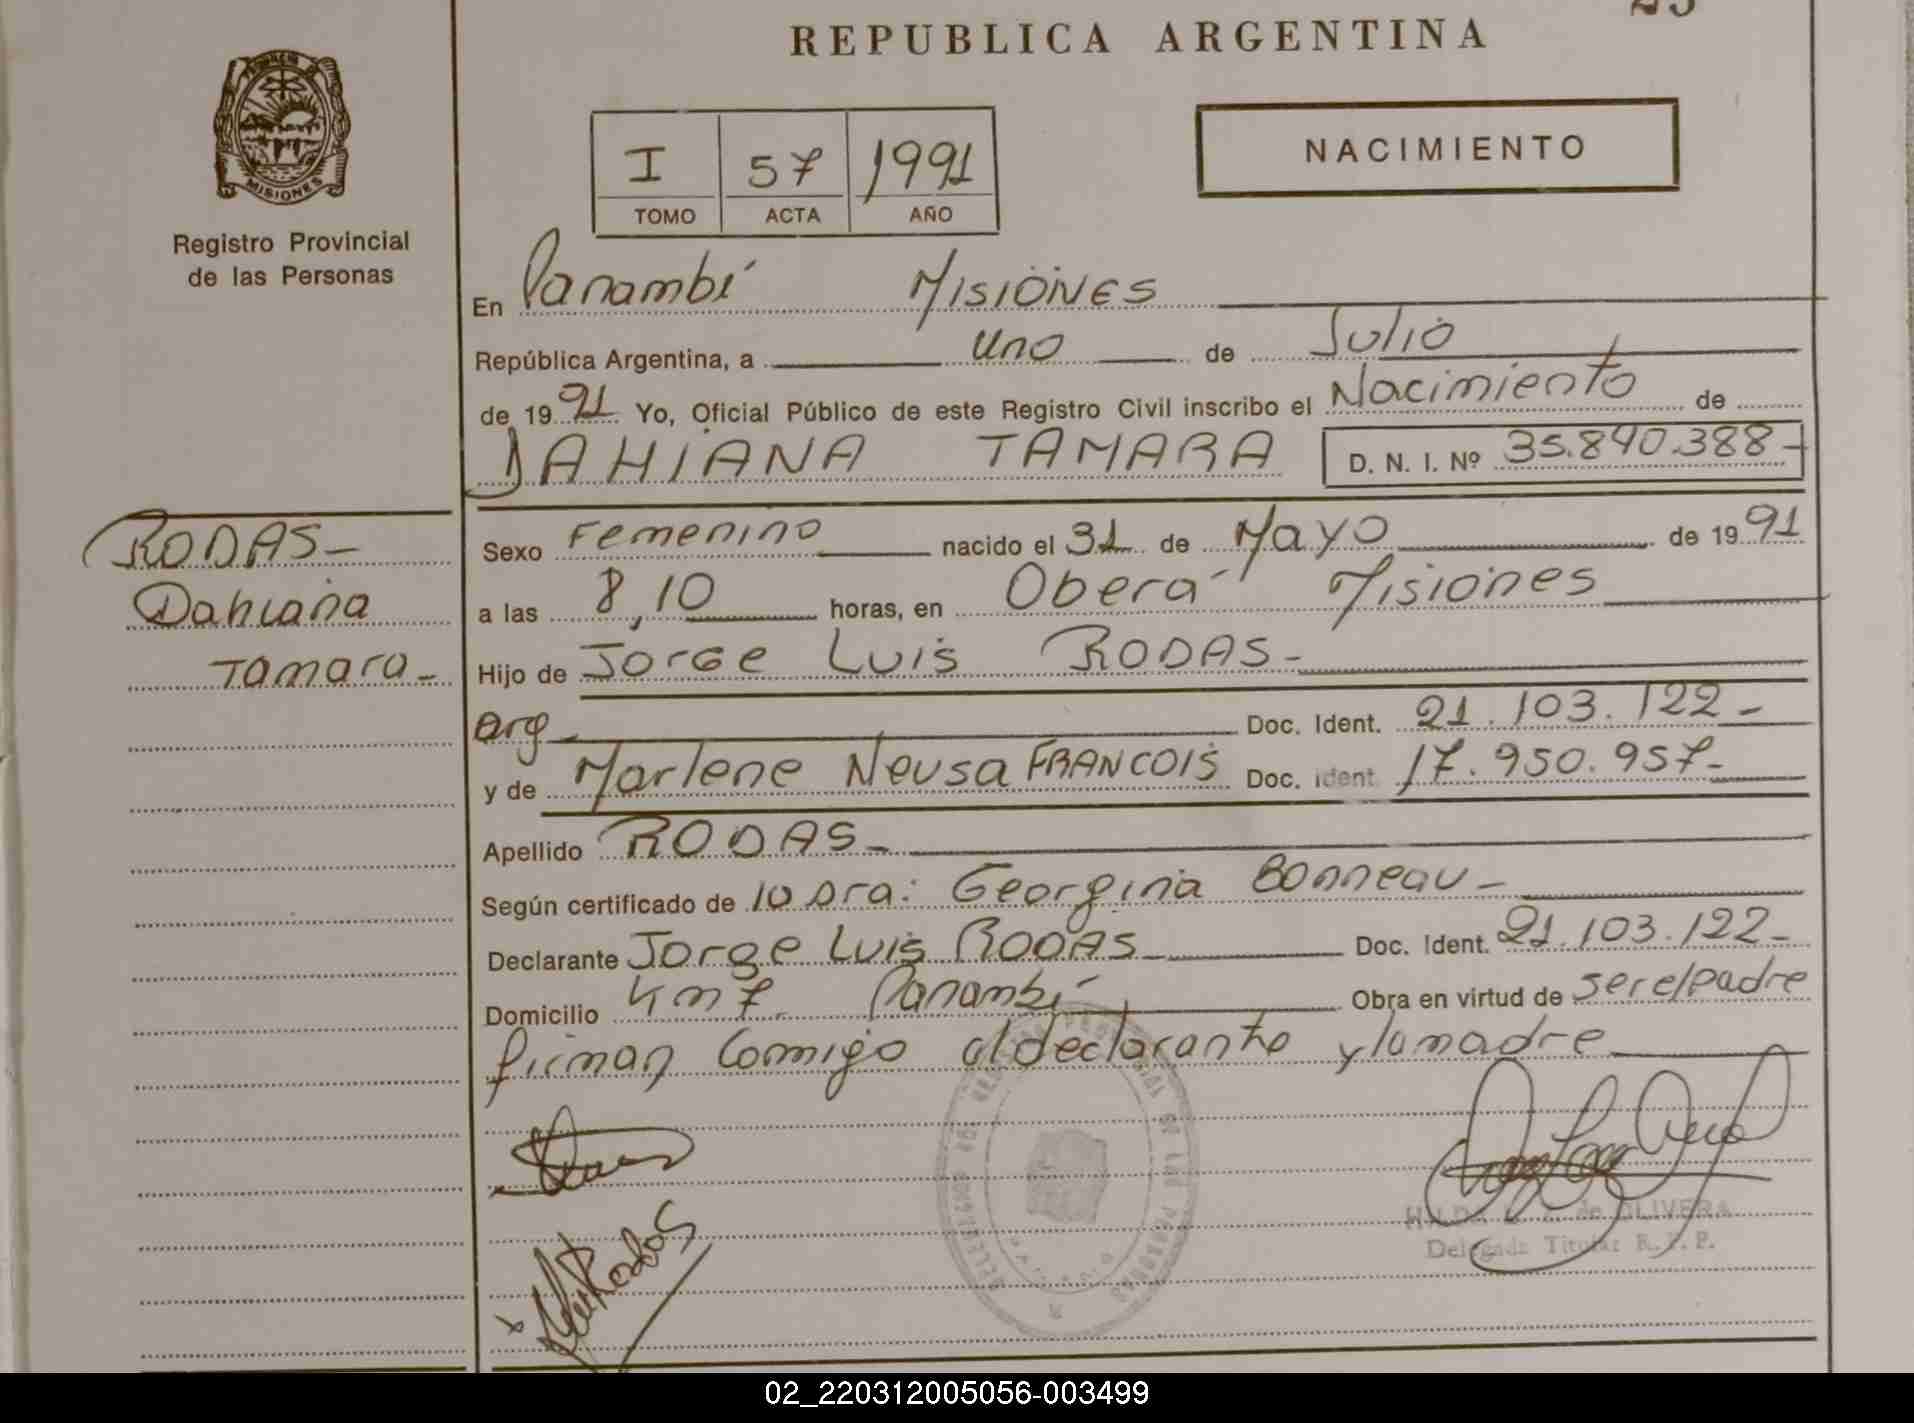 23
REPUBLICA ARGENTINA
PROVINCIA DE MISIONES
Registro Provincial
de las Personas
I 57 1991
TOMO ACTA AÑO
NACIMIENTO
En Panambí Misiones
República Argentina, a uno de Julio
de 1991 Yo, Oficial Público de este Registro Civil inscribo el Nacimiento de
DAHIANA TAMARA D. N. I. Nº 35.840.388-
RODAS-
Dahiana
Tamara-
Sexo Femenino nacido el 31 de Mayo de 1991
a las 8,10 horas, en Oberá Misiones
Hijo de Jorge Luis RODAS-
arg- Doc. Ident. 21.103.122-
y de Marlene Neusa FRANCOIS Doc. Ident. 17.950.957-
Apellido RODAS-
Según certificado de la Dra: Georgina Bonneau-
Declarante Jorge Luis RODAS- Doc. Ident. 21.103.122-
Domicilio Km 7 Panambí Obra en virtud de ser el padre
firman Comigo el declarante y la madre
HILDA de OLIVERA
Delegada Titular R. P. P.
02_220312005056-003499